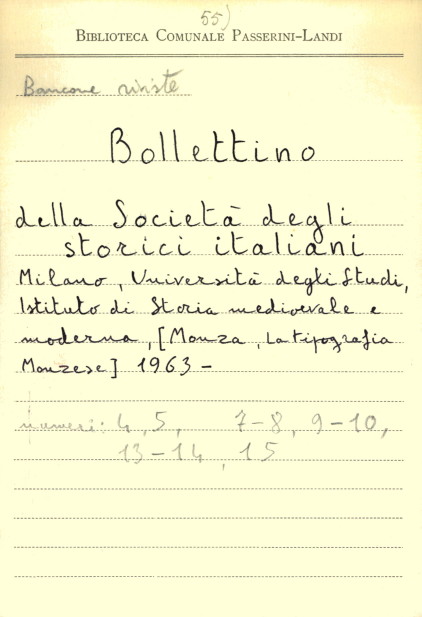 55)
BIBLIOTECA COMUNALE PASSERINI-LANDI
Bancone riviste
Bollettino
della Società degli
storici italiani
Milano, Università degli Studi,
Istituto di Storia medioevale e
moderna, [Monza, La tipografia
Monzese] 1963 -
numeri: 4, 5, 7-8, 9-10,
13-14, 15